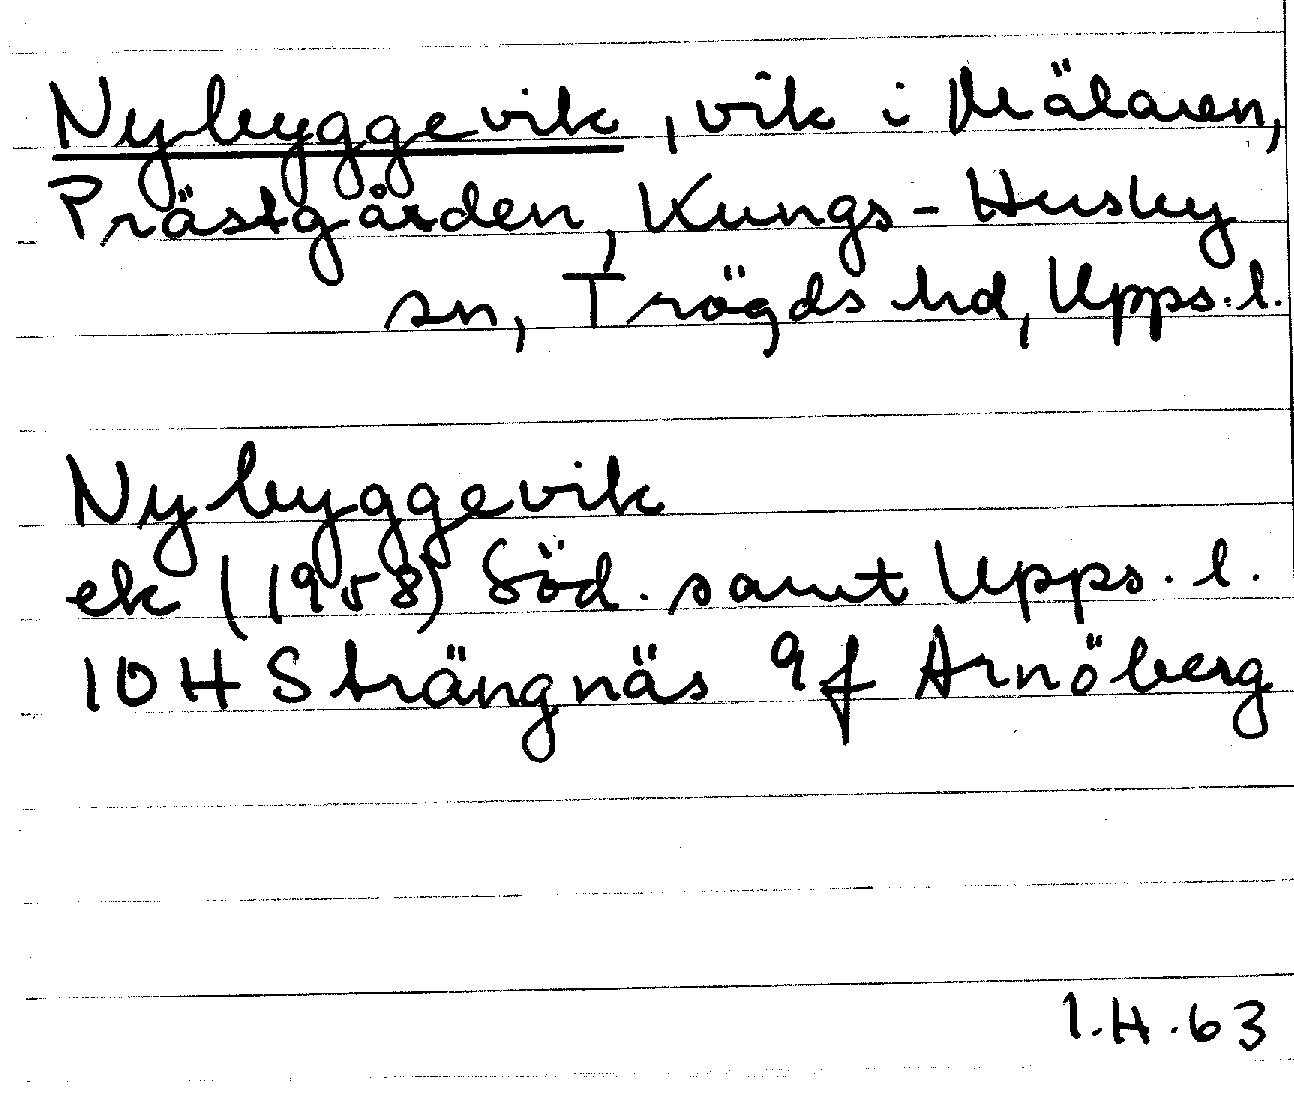 Nybyggevik, vik i Mälaren,
Prästgården, Kungs-Husby
sn, Trögds hd, Upps.l.
Nybyggevik
ek (1958) Söd. samt Upps.l.
10H Strängnäs 9f Arnöberg
I.H.63